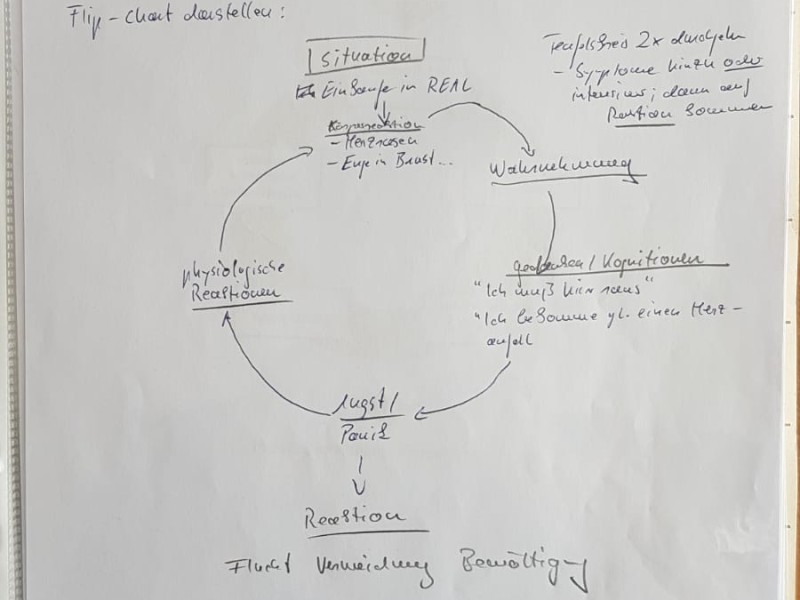 Flip-Chart darstellen:
Situation
Einkäufe in REAL
Körperreaktion
- Herzrasen
- Enge in Brust...
Teufelskreis 2x durchgehen
- Symptome hinzu oder
intensiver; dann auf
Reaktion kommen
Wahrnehmung
Gedanken / Kognitionen
"Ich muß hier raus"
"Ich bekomme gl. einen Herz-
anfall
Angst /
Panik
physiologische
Reaktionen
Reaktion
Flucht Vermeidung Bewältigung